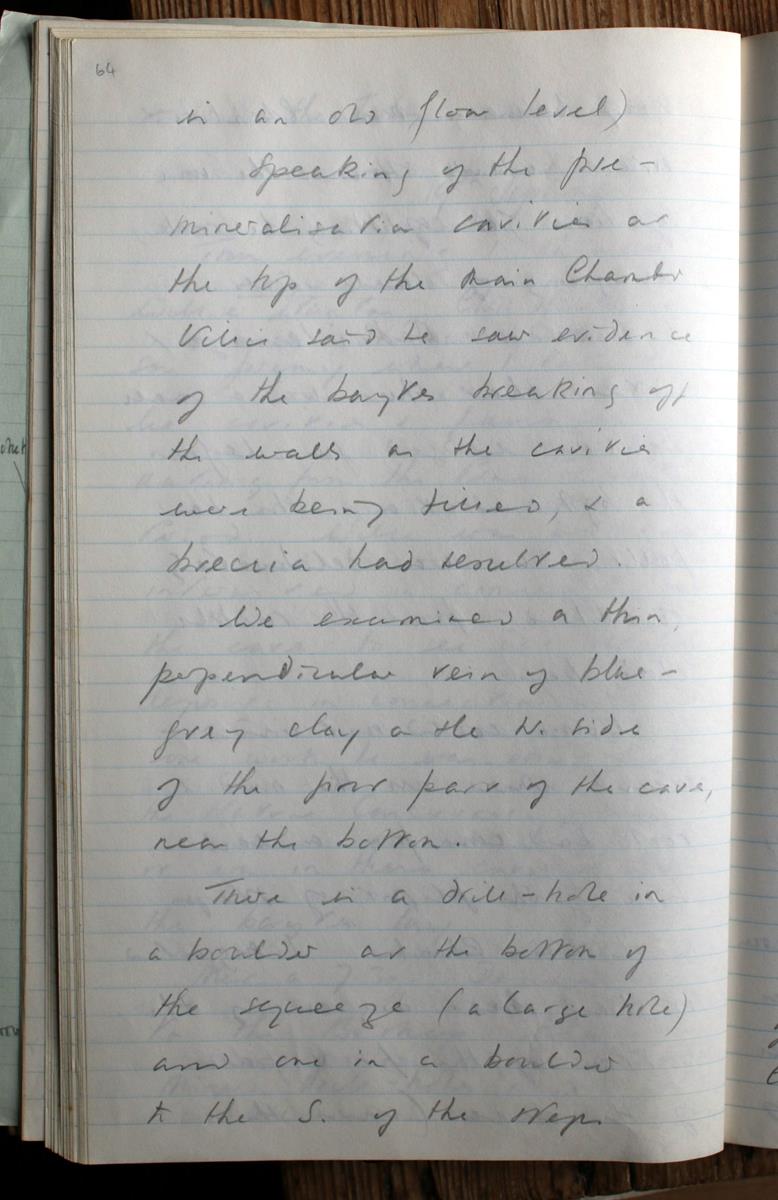 64
is an old flow level)
Speaking of the pre-
mineralisation cavities at
the top of the Main Chamber
Willie said he saw evidence
of the barytes breaking off
the walls as the cavities
were being filled, & a
breccia had resulted.
We examined a thin,
perpendicular vein of blue-
grey clay on the N. side
of the first part of the cave,
near the bottom.
There is a drill-hole in
a boulder at the bottom of
the squeeze (a large hole)
and one in a boulder
to the S. of the steps.